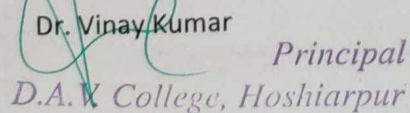 Dr. Vinay Kumar
Principal
D.A.V. College, Hoshiarpur